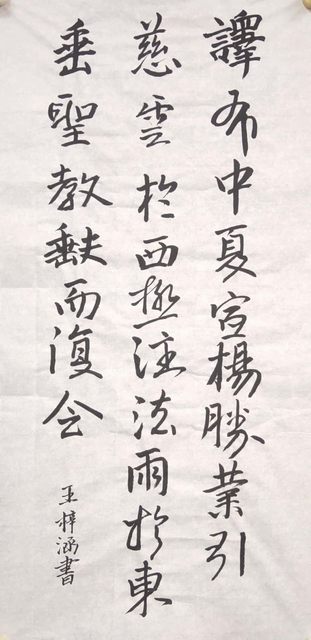 譯布中夏宣楊勝業引
慈雲於西極注法雨於東
垂聖教缺而復全
王梓涵書